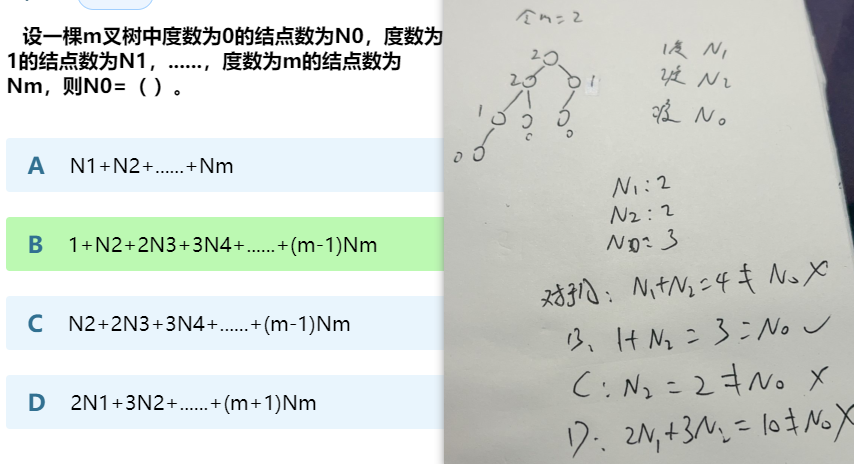 设一棵m叉树中度数为0的结点数为N0，度数为
1的结点数为N1，......，度数为m的结点数为
Nm，则N0=（ ）。
A N1+N2+......+Nm
B 1+N2+2N3+3N4+......+(m-1)Nm
C N2+2N3+3N4+......+(m-1)Nm
D 2N1+3N2+......+(m+1)Nm
令m=2
2
2
1
1
0
0
0
1度 N1
2度 N2
0度 N0
N1:2
N2:2
N0=3
对于A: N1+N2=4≠N0 ×
B、1+N2=3=N0 ✓
C:N2=2≠N0 ×
D:2N1+3N2=10≠N0 ×